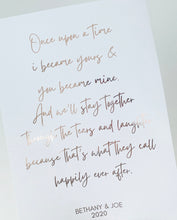 Once upon a time
i became yours &
you became mine.
And we'll stay together
through the tears and laughter
because that's what they call
happily ever after.
BETHANY & JOE
2020